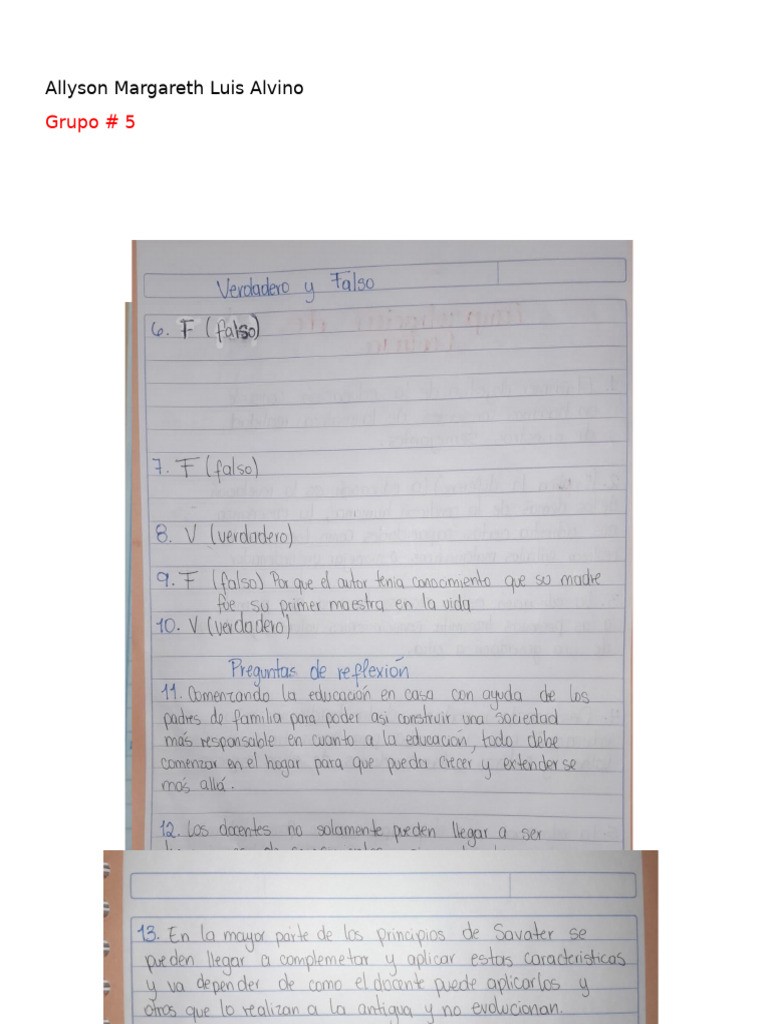 Allyson Margareth Luis Alvino
Grupo # 5
Verdadero y Falso
6. F (falso)
7. F (falso)
8. V (verdadero)
9. F (falso) Por que el autor tenia conocimiento que su madre
fue su primer maestra en la vida
10. V (verdadero)
Preguntas de reflexión
11. Comenzando la educación en casa con ayuda de los
padres de familia para poder asi construir una sociedad
más responsable en cuanto a la educación, todo debe
comenzar en el hogar para que pueda crecer y extenderse
más allá.
12. Los docentes no solamente pueden llegar a ser
13. En la mayor parte de los principios de Savater se
pueden llegar a complemetar y aplicar estas caracteristicas
y va depender de como el docente puede aplicarlos y
otros que lo realizan a la antigua y no evolucionan.